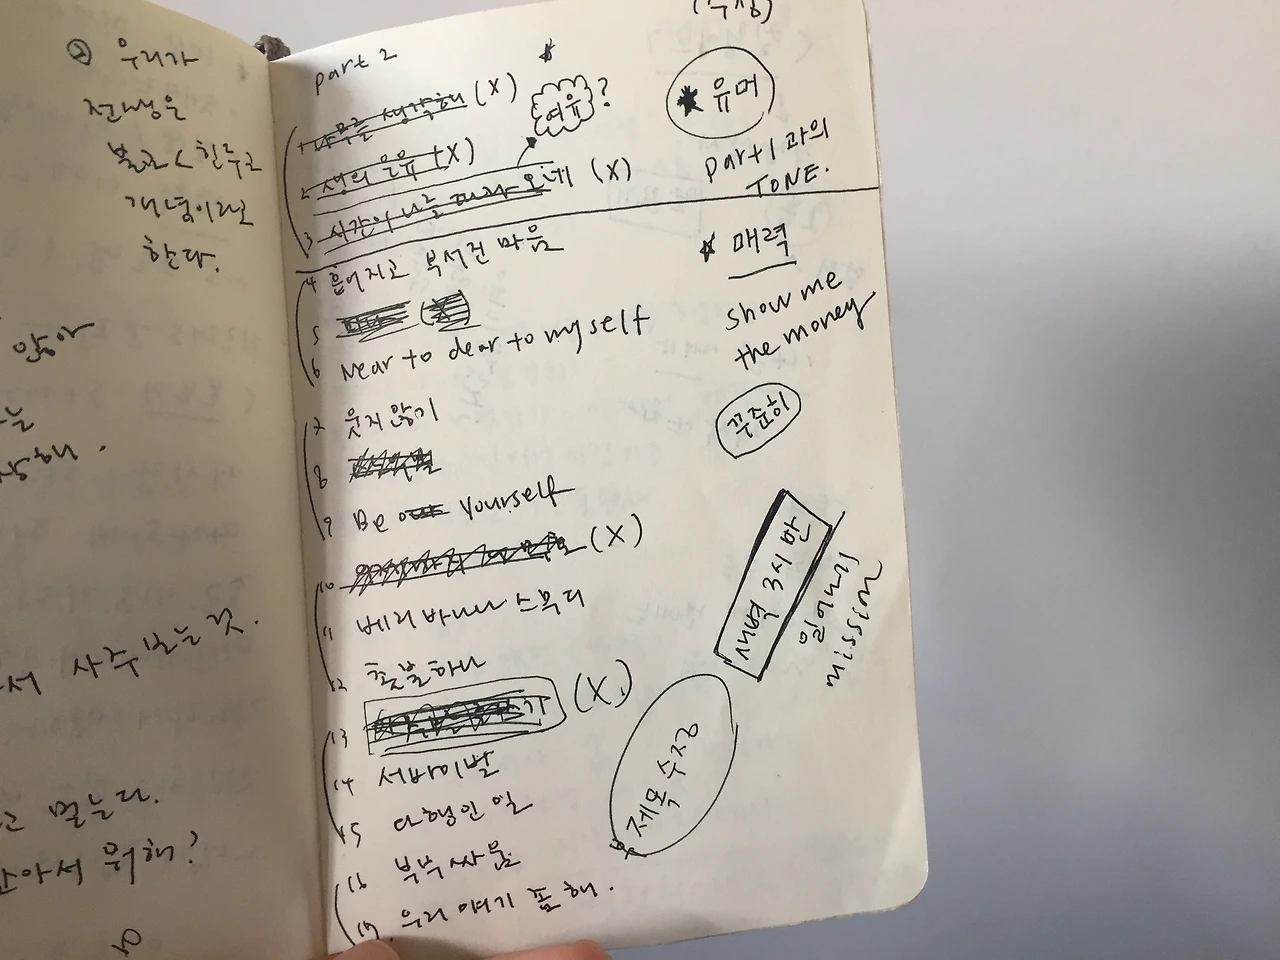 ② 우리가
전생은
불교 < 힌두교
개념이라고
한다.
않아
는
서 사주 보는 것.
믿는다.
아서 뭐해?
(수정)
part 2
1 나무를 생각해 (X)
여유?
2 생의 은유 (X)
3 시간이 나를 따라오네 (X)
4 흩어지고 부서진 마음
5 (X)
6 Near to dear to myself
7 웃지 않기
8
9 Be yourself
10 (X)
11 베리 바나나 스무디
12 촛불하나
13 (X)
14 서바이벌
15 다행인 일
16 부부싸움
17. 우리 얘기 좀 해.
★ 유머
part 1 과의
TONE.
★ 매력
show me
the money
꾸준히
새벽 3시 반
일어나기
mission
제목 수정